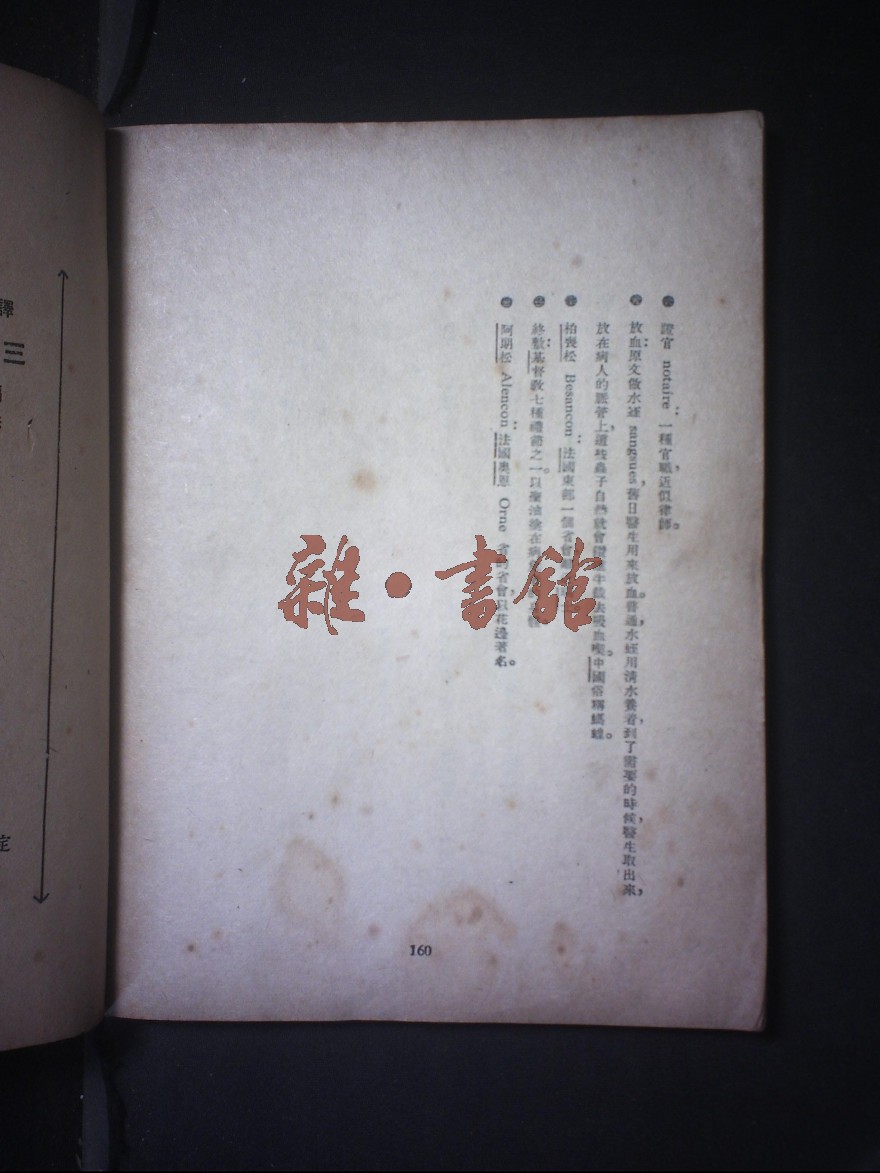 證官 notaire：一種官職，近似律師。
放血：原文做水蛭 sangsues，舊日醫生用來放血。普通水蛭用清水養着，到了需要的時候，醫生取出來，
放在病人的 上，這枝蟲子自然就會 去吸血 。中國俗稱螞蝗。
柏喪松 Besancon：法國東部一個省會
終敷：基督教七種禮節之一。以聖油塗在病
阿朗松 Alencon：法國奧恩 Orne 省的省會，以花邊著名。
160
雜·書館
譯
三